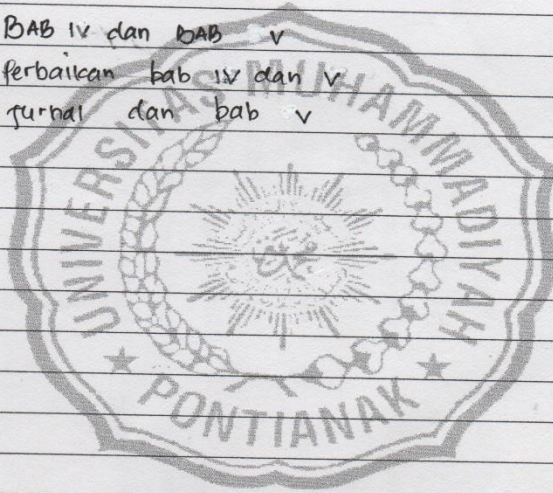 BAB IV dan BAB V
Perbaikan bab IV dan V
Jurnal dan bab V
UNIVERSITAS MUHAMMADIYAH
PONTIANAK